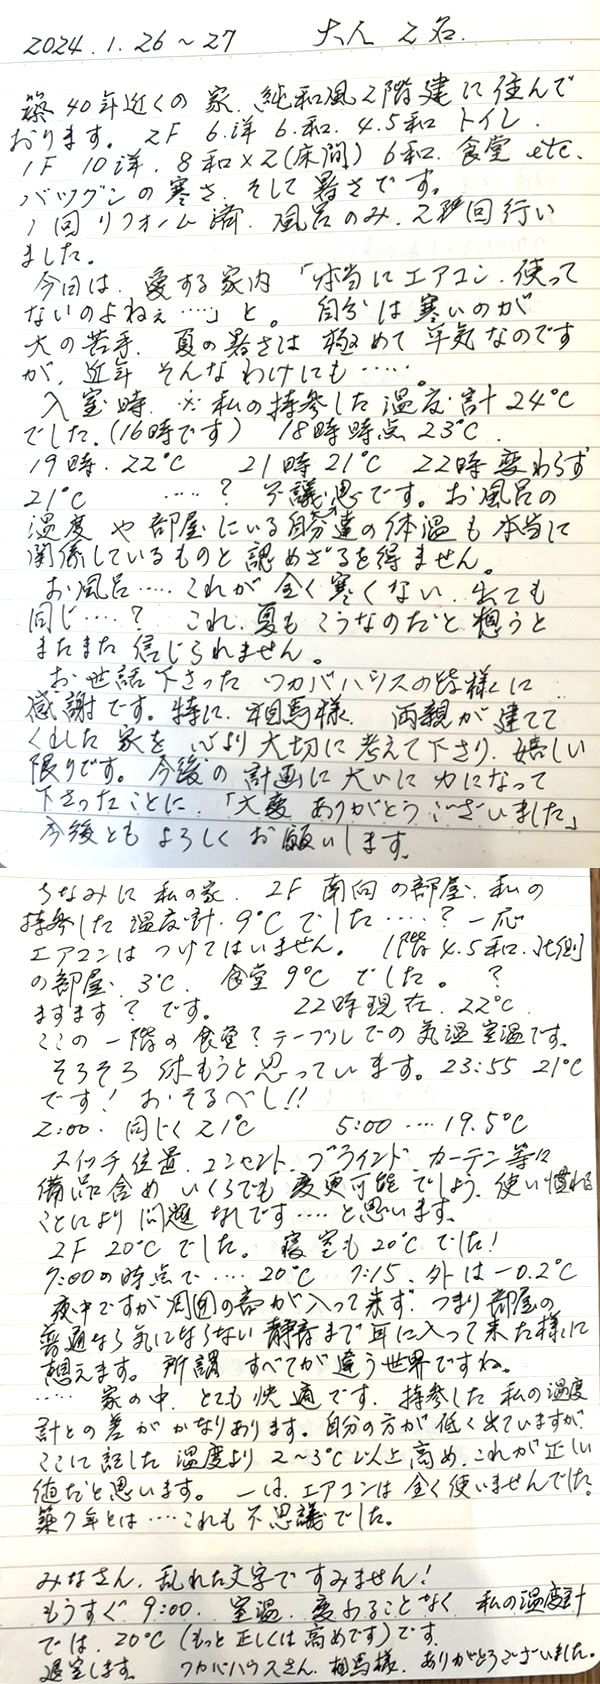 2024.1.26～27　大人 2名.
築40年近くの家、純和風2階建に住んで
おります。2F 6.洋 6.和. 4.5和 トイレ.
1F 10洋. 8和×2(床間) 6和. 食堂 etc.
バツグンの寒さ、そして暑さです。
1回リフォーム済. 風呂のみ、2回行い
ました。
今回は、愛する家内「本当にエアコン、使って
ないのよねぇ……」と。自分は寒いのが
大の苦手、夏の暑さは極めて平気なのです
が、近年そんなわけにも……。
入室時、※私の持参した温度計24℃
でした。(16時です) 18時時点23℃.
19時.22℃ 21時21℃ 22時変わらず
21℃ ……? 不議思です。お風呂の
温度や部屋にいる自分達の体温も本当に
関係しているものと認めざるを得ません。
お風呂……これが全く寒くない、出ても
同じ……? これ、夏もこうなのだと想うと
またまた信じられません。
お世話下さったワカバハウスの皆様に
感謝です。特に、相馬様、両親が建てて
くれた家を心より大切に考えて下さり、嬉しい
限りです。今後の計画に大いに力になって
下さったことに、「大変ありがとうございました」
今後ともよろしくお願いします。
ちなみに私の家、2F南向の部屋、私の
持参した温度計、9℃でした……? 一応
エアコンはつけてはいません。1階4.5和、北側
の部屋、3℃、食堂9℃でした。?
ますます?です。22時現在、22℃.
ここの一階の食堂?テーブルでの気温室温です。
そろそろ休もうと思っています。23:55 21℃
です! おそるべし!!
2:00. 同じく21℃ 5:00 …. 19.5℃
スイッチ位置、コンセント、ブラインド、カーテン等に
備品含めいくらでも変更可能でしょう、使い慣れる
ことにより問題なしです……と思います。
2F 20℃でした。寝室も20℃でした!
7:00の時点で……20℃ 7:15、外は-0.2℃
夜中ですが周囲の音が入って来ず、つまり部屋の
普通なら気にならない静音まで耳に入って来た様に
想えます。所謂すべてが違う世界ですね。
……家の中、とても快適です、持参した私の温度
計との差がかなりあります。自分の方が低く出ていますが、
ここに記した温度より2～3℃以上高め、これが正しい
値だと思います。一は、エアコンは全く使いませんでした。
築7年とは……これも不思議でした。
みなさん、乱れた文字ですみません!
もうすぐ9:00. 室温、変わることなく 私の温度計
では、20℃(もっと正しくは高めです)です。
退室します。ワカバハウスさん、相馬様、ありがとうございました。